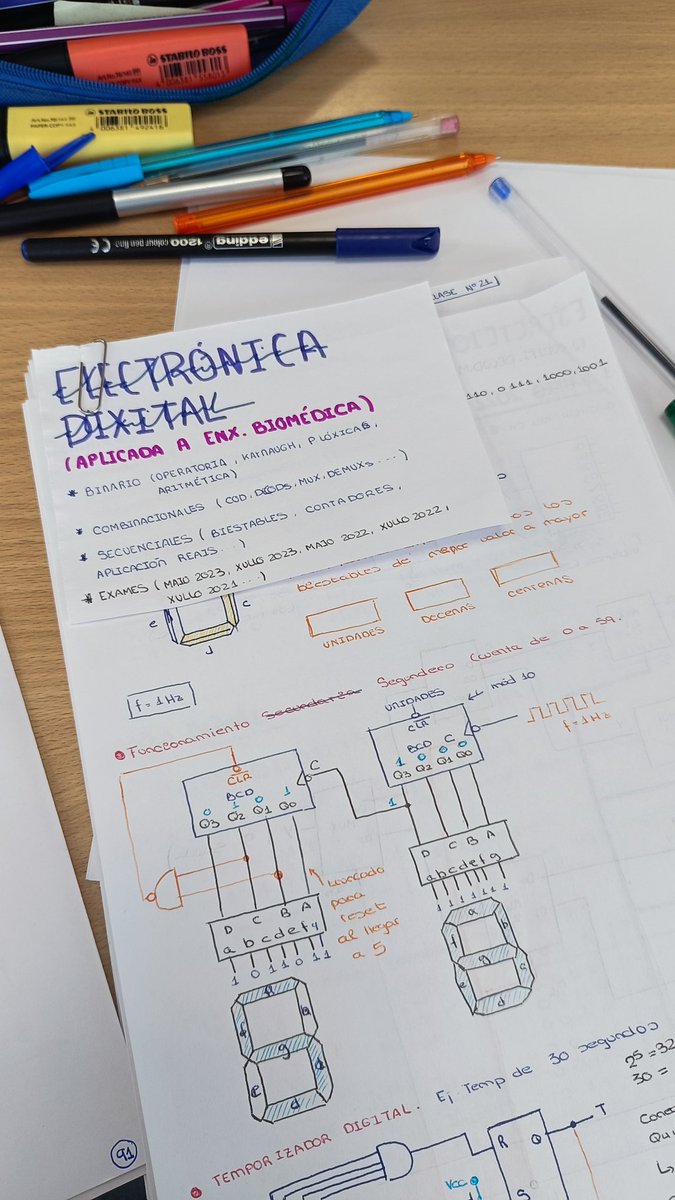 STABILO BOSS
STABILO BOSS
4 006381 492416
edding 1200 colour pen fine CE
CLASE Nº 21
ELECTRÓNICA
DIXITAL
(APLICADA A ENX. BIOMÉDICA)
* BINARIO (OPERATORIA, KARNAUGH, P LÓXICAS,
ARITMÉTICA)
* COMBINACIONALES (COD, DECODS, MUX, DEMUXS...)
* SECUENCIALES (BIESTABLES, CONTADORES,
APLICACIÓN REAIS...)
* EXAMES (MAIO 2023, XULLO 2023, MAIO 2022, XULLO 2022,
XULLO 2021...)
110, 0111, 1000, 1001
los
biestables de menor valor a mayor
UNIDADES
DECENAS
CENTENAS
e
c
d
f = 1Hz
Funcionamiento Secundario Segundero (cuenta de 0 a 59.
UNIDADES ← mód 10
CLR
BCD C
1 0 0 0
Q3 Q2 Q1 Q0
f = 1Hz
CLR
C
BCD
0 1 0 1
Q3 Q2 Q1 Q0
1
D C B A
a b c d e f g
1 1 1 1 1 1 1
a
f b
g
e c
d
D C B A
a b c d e f g
1 0 1 1 0 1 1
para
reset
al llegar
a 5
f
g
e
d
TEMPORIZADOR DIGITAL. Ej Temp de 30 segundos
2⁵ = 32
30 =
R Q
T
VCC
S
91